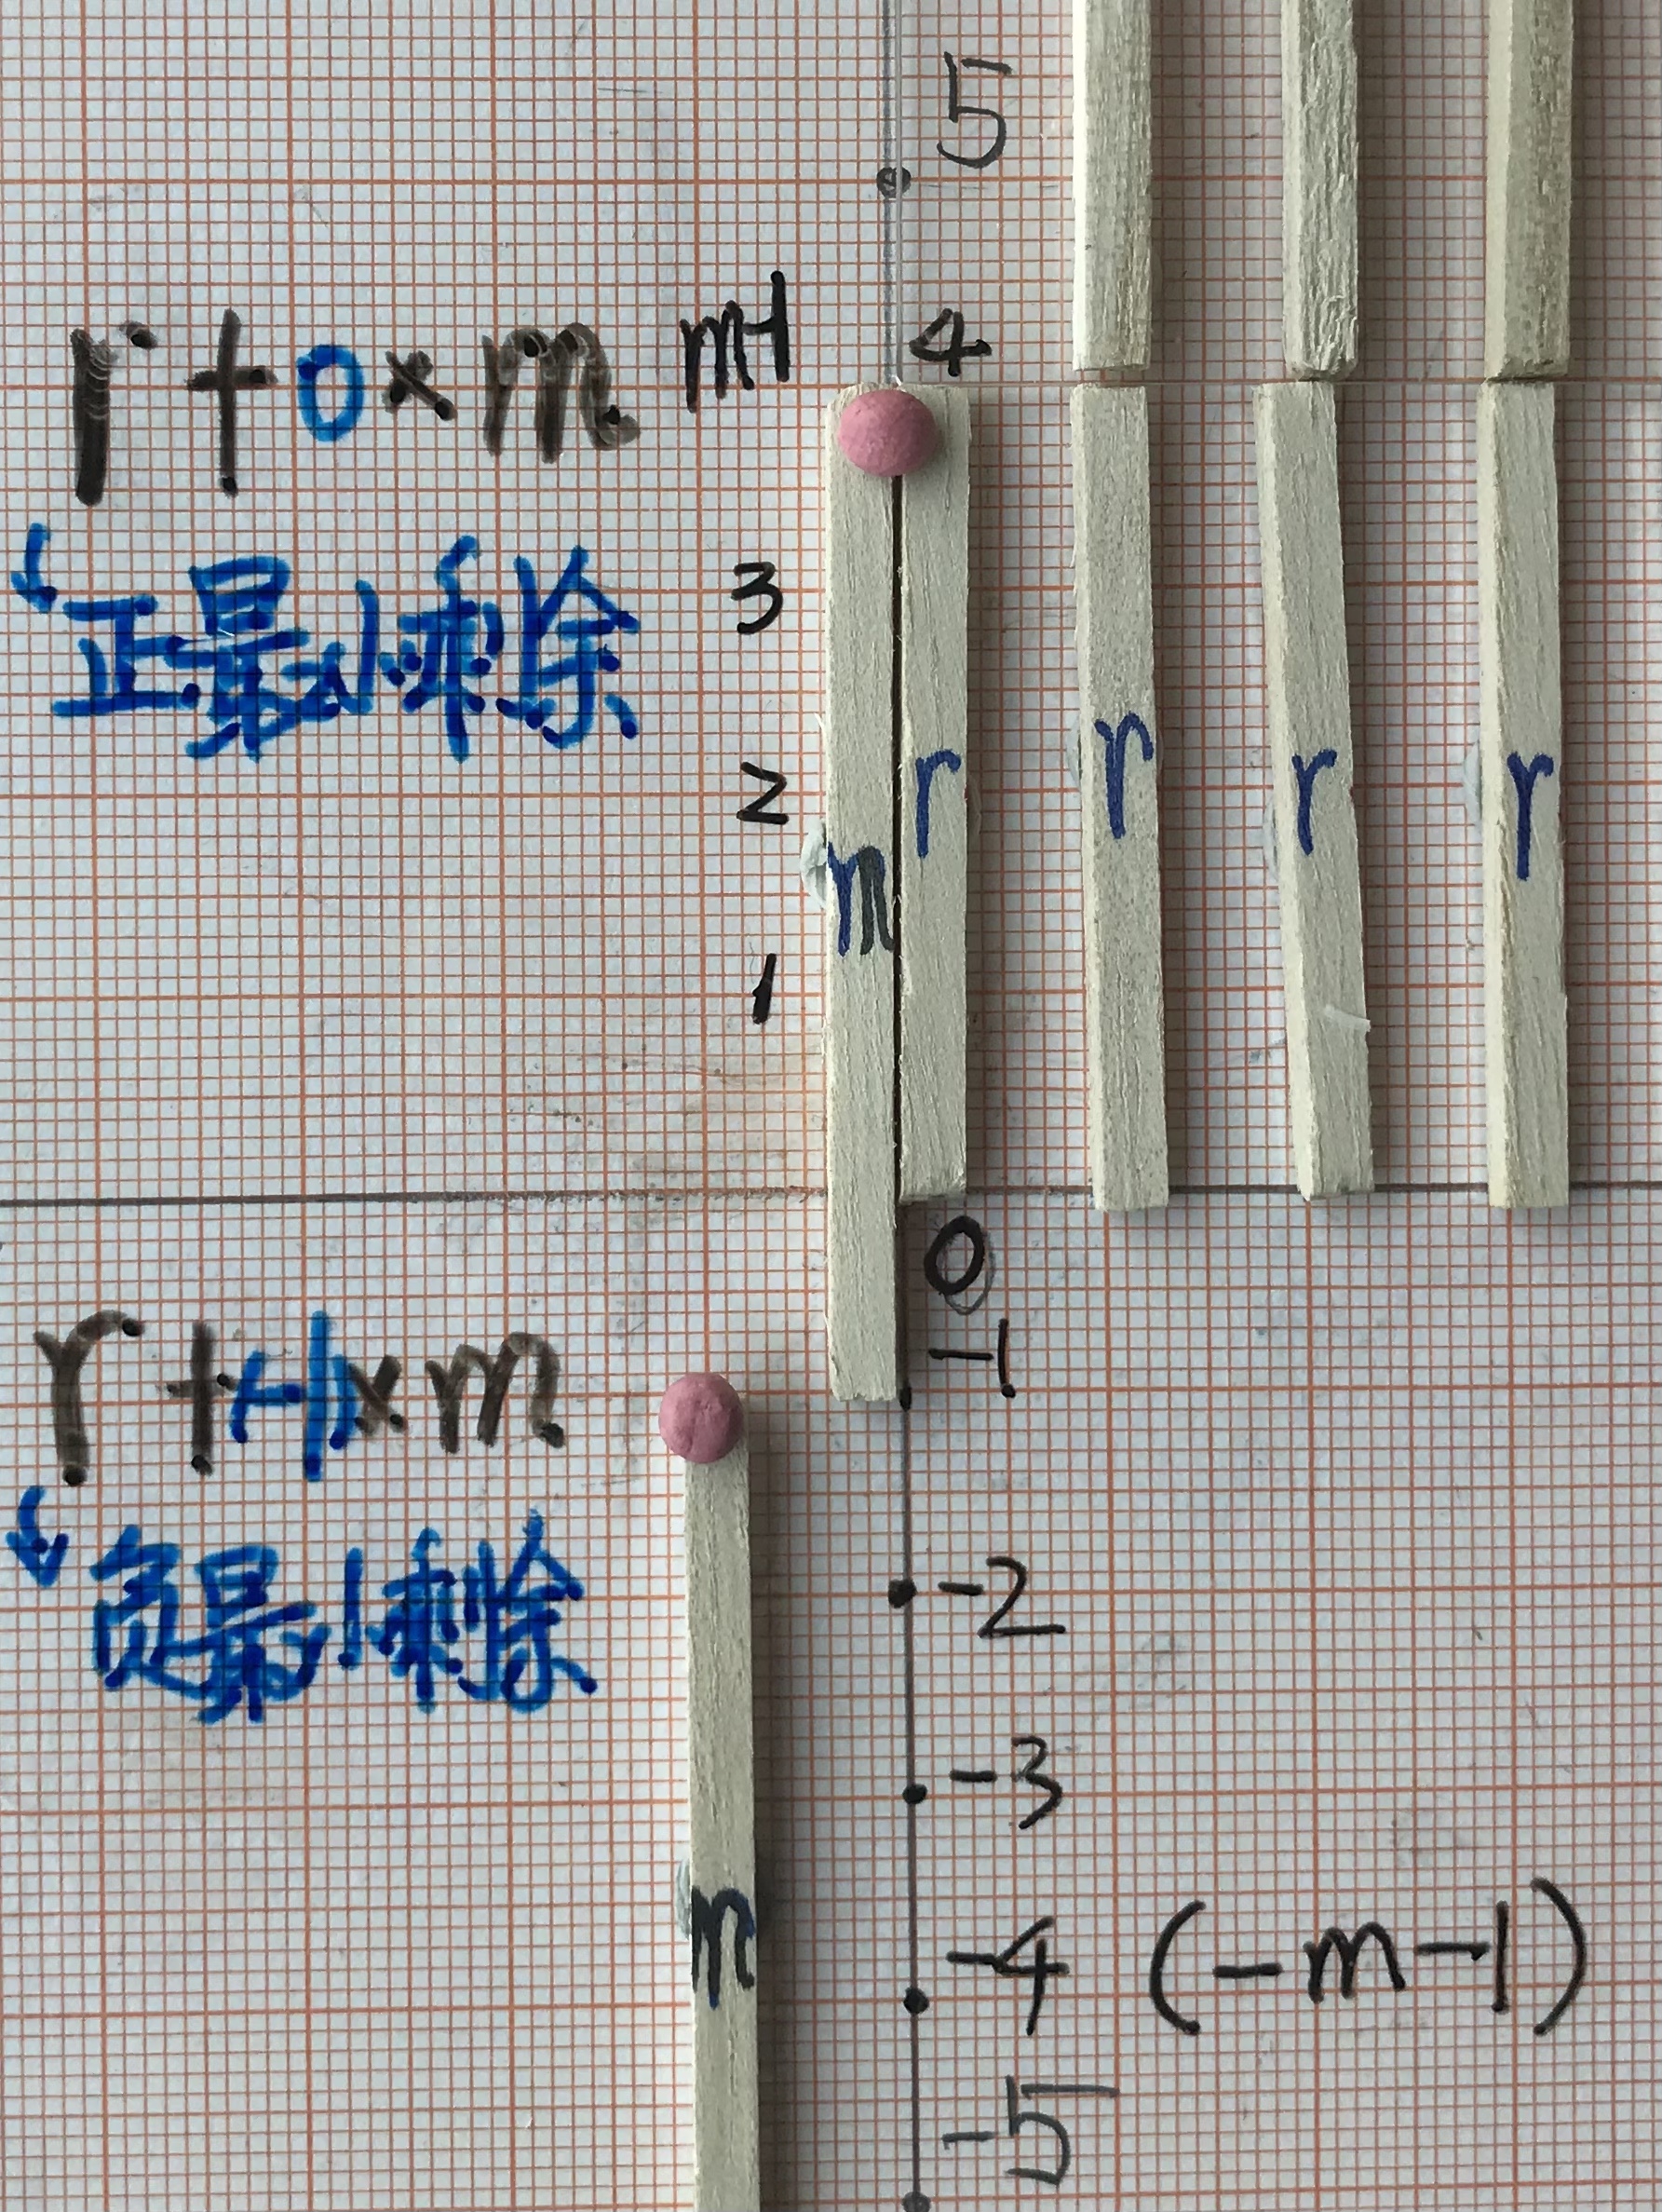 5
r+0×m m-1 4
正最小剩除
3
2
r r r r
m
1
0
r+(-1)×m -1
负最小剩除
-2
-3
m
-4 (-m-1)
-5